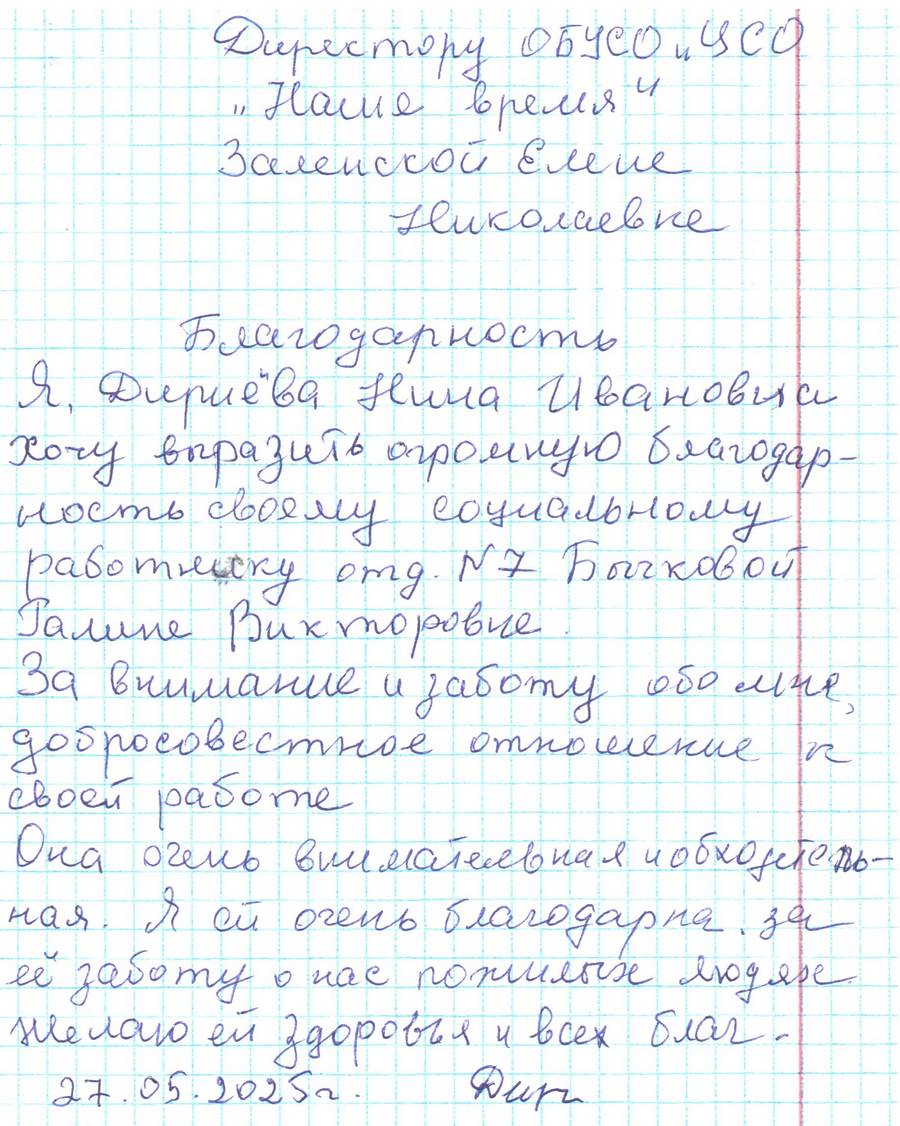 Директору ОБУСО „ЦСО
„Наше время"
Заленской Елене
Николаевне
Благодарность
Я, Дириёва Нина Ивановна
хочу выразить огромную благодар-
ность своему социальному
работнику отд. N7 Бычковой
Галине Викторовне.
За внимание и заботу обо мне,
добросовестное отношение к
своей работе
Она очень внимательная и обходитель-
ная. Я ей очень благодарна за
её заботу о нас пожилых людях
Желаю ей здоровья и всех благ.
27.05.2025г.